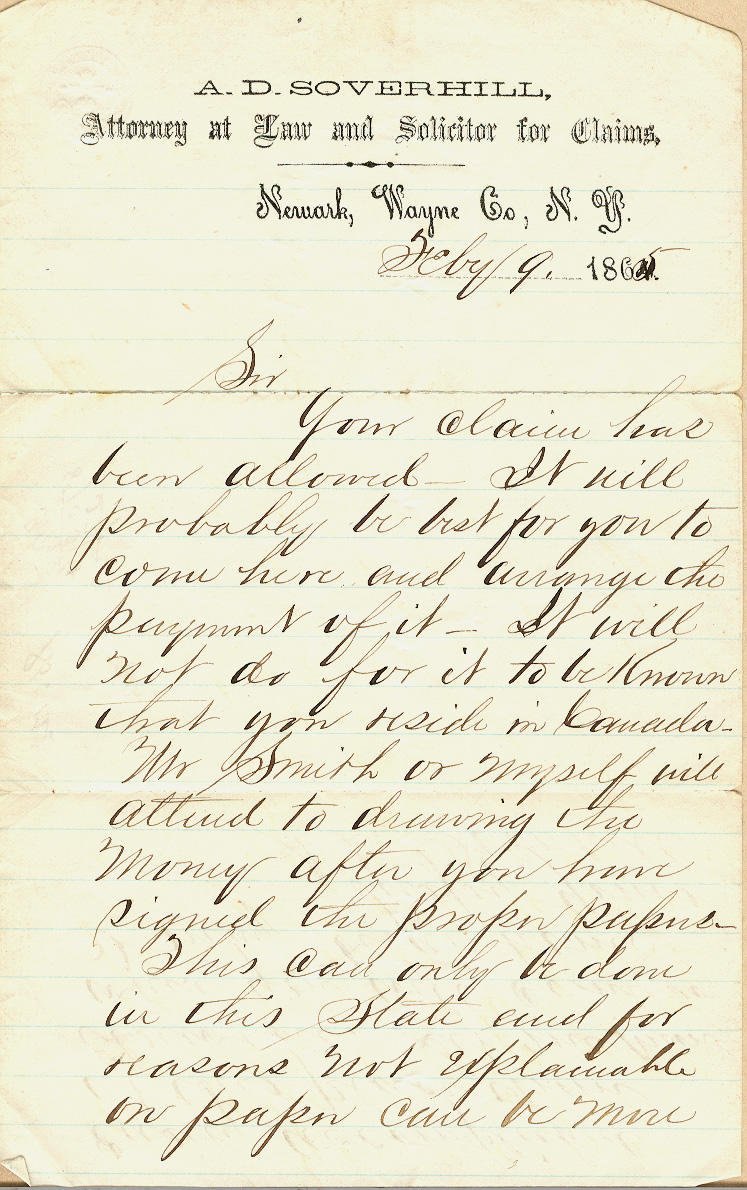 A. D. SOVERHILL,
Attorney at Law and Solicitor for Claims,
Newark, Wayne Co, N. Y.
Feby 9. 1865.
Sir
Your claim has
been allowed – It will
probably be best for you to
come here and arrange the
payment of it – It will
not do for it to be Known
that you reside in Canada –
Mr Smith or myself will
attend to drawing the
Money after you have
signed the proper papers –
This can only be done
in this State and for
reasons not explainable
on paper can be more